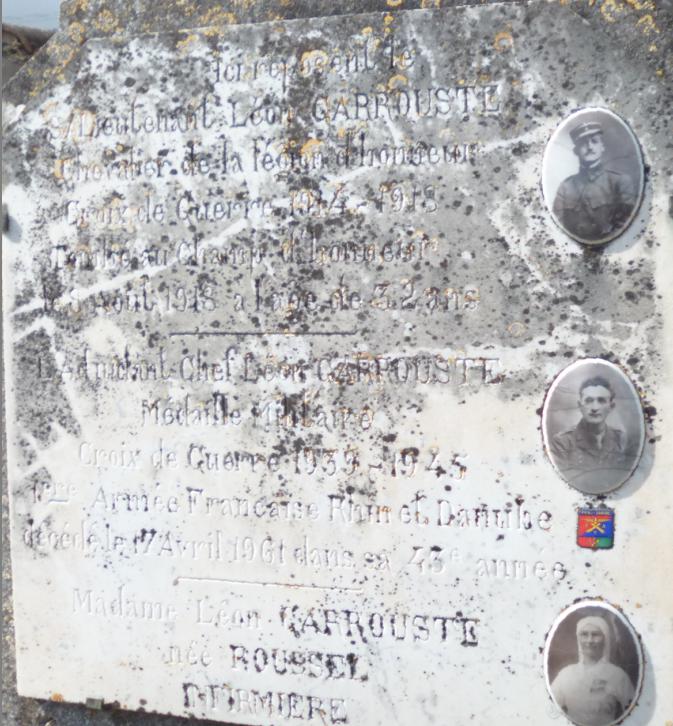 Ici reposent le
S/Lieutenant Léon GARROUSTE
Chevalier de la légion d'honneur
Croix de Guerre 1914-1918
Tombé au champ d'honneur
le 8 Août 1918 à l'age de 32 ans
L'Adjudant-Chef Léon GARROUSTE
Médaille Militaire
Croix de Guerre 1939-1945
1ere Armée Française Rhin et Danube
décédé le 17 Avril 1961 dans sa 48e année
Madame Léon GARROUSTE
née ROUSSEL
INFIRMIERE